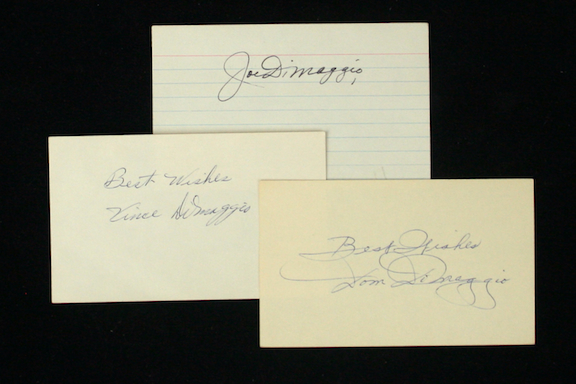 Joe DiMaggio
Best Wishes
Vince DiMaggio
Best Wishes
Dom DiMaggio